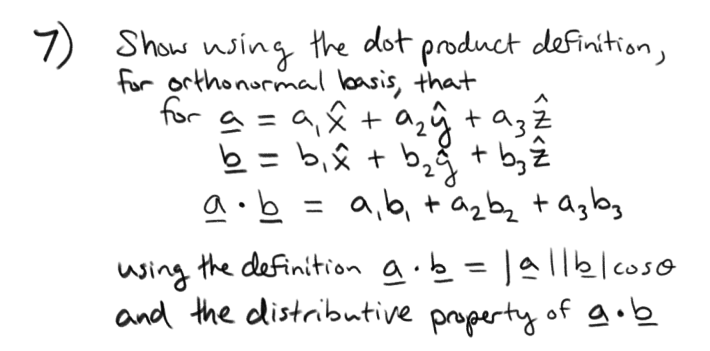 7) Show using the dot product definition,
for orthonormal basis, that
for a̲ = a₁x̂ + a₂ŷ + a₃ẑ
b̲ = b₁x̂ + b₂ŷ + b₃ẑ
a̲ · b̲ = a₁b₁ + a₂b₂ + a₃b₃
using the definition a̲ · b̲ = |a̲||b̲|cosθ
and the distributive property of a̲ · b̲